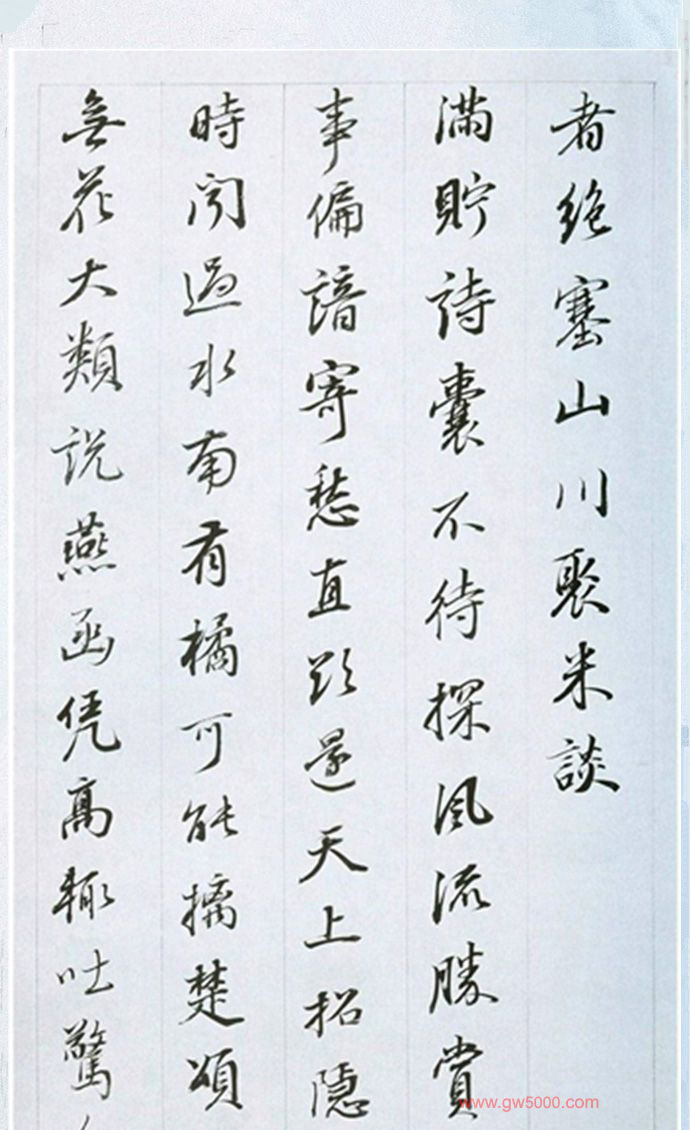 者絶塞山川聚米談
滿貯詩囊不待探風流勝賞
事偏諳寄愁直欲還天上招隱
時聞過水南有橘可能摛楚頌
無花大類説燕函凭高輙吐驚
www.gw5000.com